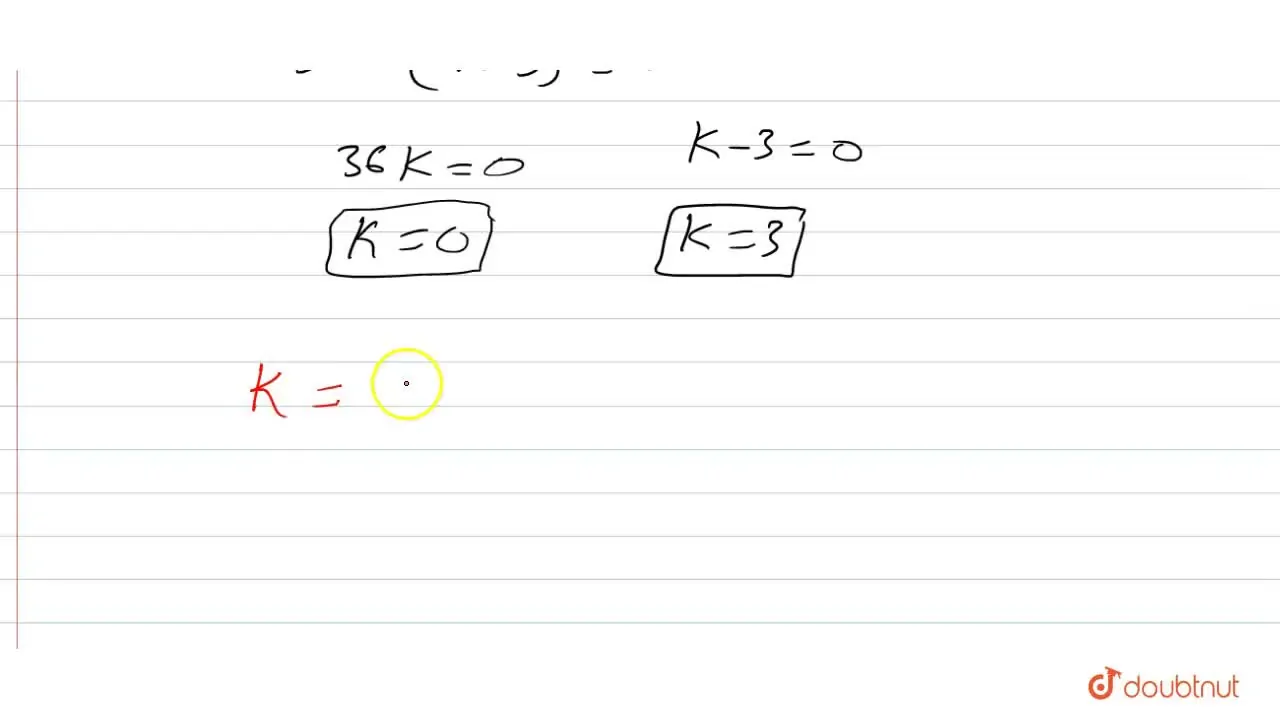 36K=0 K-3=0
K=0 K=3
K=
doubtnut